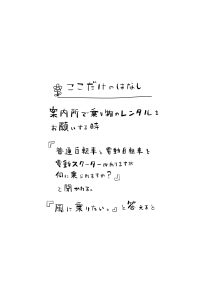 ここだけのはなし
案内所で乗り物のレンタルを
お願いする時
『普通自転車と電動自転車と
電動スクーターがありますが
何に乗られますか?』
と聞かれる。
『風に乗りたい。』と答えると